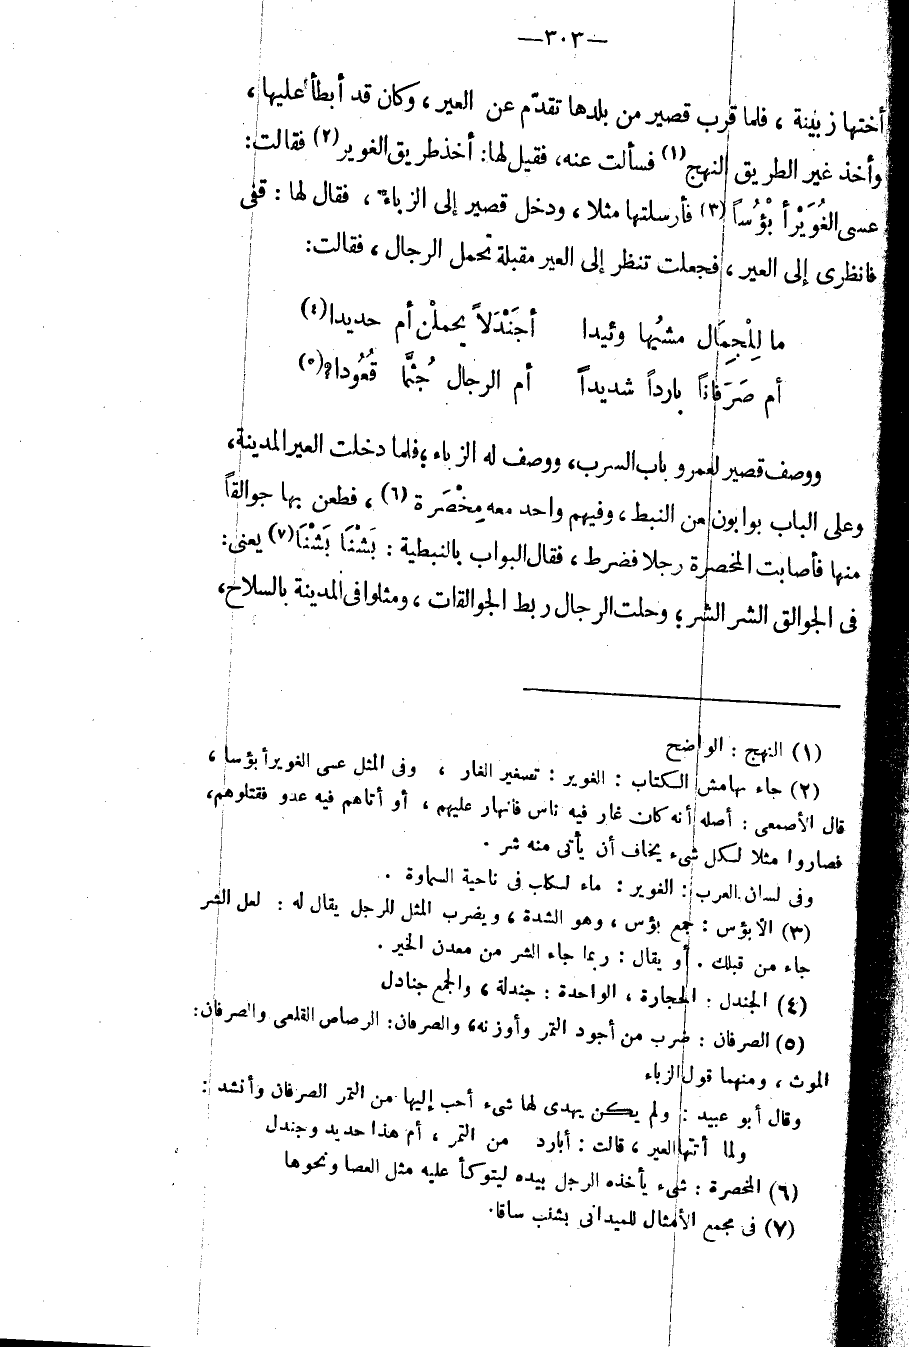 —٣٠٣—
أختها زبيبة ، فلما قرب قصير من بلدها تقدّم عن العير ، وكان قد أبطأ عليها ،
وأخذ غير الطريق النهج(١) فسألت عنه، فقيل لها: أخذ طريق الغوير(٢) فقالت:
عسى الغُوَيْر أَبْؤُساً (٣) فأرسلتها مثلا ، ودخل قصير إلى الزباء ، فقال لها : قفى
فانظرى إلى العير ، فجعلت تنظر إلى العير مقبلة تحمل الرجال ، فقالت:
ما لِلْجِمَال مشيُها وئيدا أجَنْدَلاً يحملْن أم حديدا(٤)
أم صَرَفاناً بارداً شديداً أم الرجال جُثَّمًا قُعُودا؟(٥)
ووصف قصير لعمرو باب السرب، ووصف له الزباء ؛ فلما دخلت العير المدينة،
وعلى الباب بوابون من النبط ، وفيهم واحد معه مِخْصَرة (٦) ، فطعن بها جوالقاً
منها فأصابت المخصرة رجلا فضرط ، فقال البواب بالنبطية : بَشْنَا بَشْنَا(٧) يعنى:
فى الجوالق الشر الشر ؛ وحلت الرجال ربط الجوالقات ، ومثلوا فى المدينة بالسلاح،
(١) النهج : الواضح
(٢) جاء بهامش الكتاب : الغوير : تصغير الغار ، وفى المثل عسى الغوير أبؤسا ،
قال الأصمعى : أصله أنه كان غار فيه ناس فانهار عليهم ، أو أتاهم فيه عدو فقتلوهم،
فصاروا مثلا لكل شىء يخاف أن يأتى منه شر .
وفى لسان العرب : الغوير : ماء لكلب فى ناحية السماوة .
(٣) الأبؤس : جمع بؤس ، وهو الشدة ، ويضرب المثل للرجل يقال له : لعل الشر
جاء من قبلك . أو يقال : ربما جاء الشر من معدن الخير .
(٤) الجندل : الحجارة ، الواحدة : جندلة ، والجمع جنادل
(٥) الصرفان : ضرب من أجود التمر وأوزنه، والصرفان: الرصاص القلعى والصرفان:
الموت ، ومنهما قول الزباء
وقال أبو عبيد : ولم يكن يهدى لها شىء أحب إليها من التمر الصرفان وأنشد :
ولما أتتها العير ، قالت : أبارد من التمر ، أم هذا حديد وجندل
(٦) المخصرة : شىء يأخذه الرجل بيده ليتوكأ عليه مثل العصا ونحوها
(٧) فى مجمع الأمثال للميدانى بشنب ساقا.